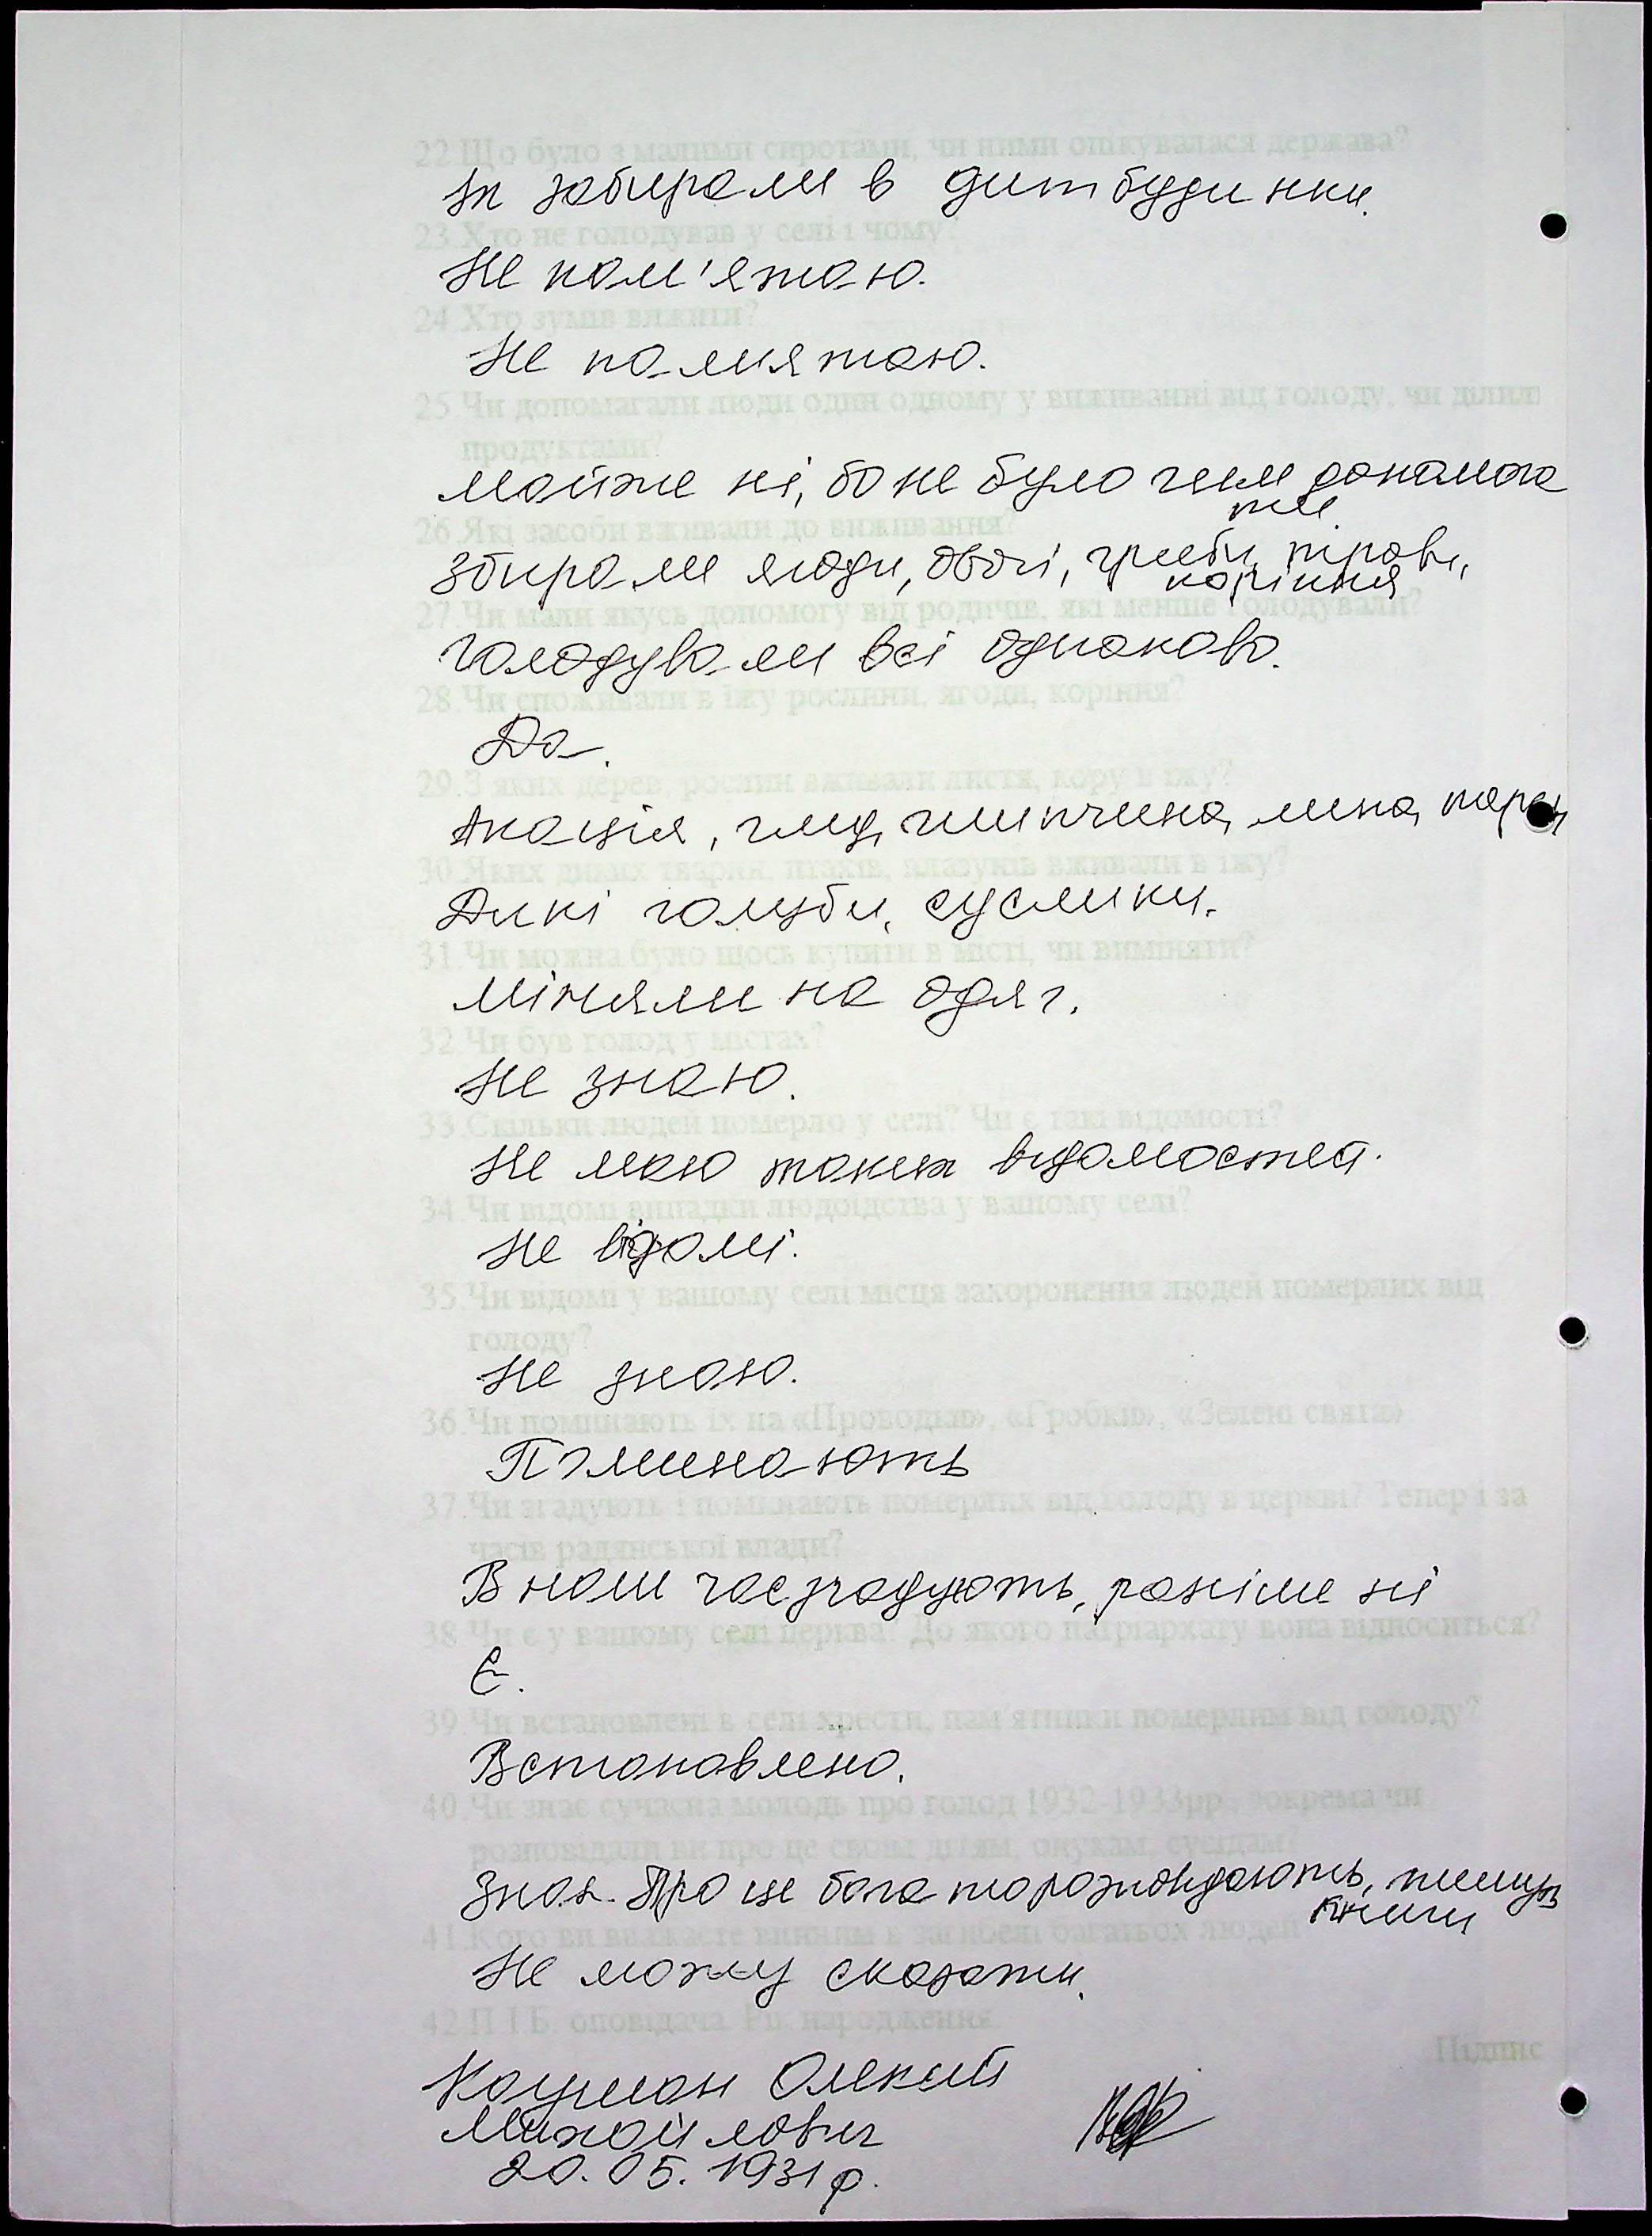 22.Що було з малими сиротами, чи ними опікувалася держава?
Їх забирали в дитбудинки.
23.Хто не голодував у селі і чому?
Не пам'ятаю.
24.Хто зумів вижити?
Не памятаю.
25.Чи допомагали люди один одному у виживанні від голоду, чи ділили
продуктами?
майже ні, бо не було чим допамога
ти.
26.Які засоби вживали до виживання?
Збирали ягоди, овочі, гриби, трави,
коріння
27.Чи мали якусь допомогу від родичів, які менше голодували?
Голодували всі однаково.
28.Чи споживали в їжу рослини, ягоди, коріння?
Да.
29.З яких дерев, рослин вживали листя, кору в їжу?
Акація, глид, шипчина, липа,
30.Яких диких тварин, птахів, плазунів вживали в їжу?
Дикі голуби, суслики.
31.Чи можна було щось купити в місті, чи виміняти?
Міняли на одяг.
32.Чи був голод у містах?
Не знаю.
33.Скільки людей померло у селі? Чи є такі відомості?
Не маю таких відомостей.
34.Чи відомі випадки людоїдства у вашому селі?
Не відомі.
35.Чи відомі у вашому селі місця захоронення людей померлих від
голоду?
Не знаю.
36.Чи поминають їх на «Проводах», «Гробки», «Зелені свята»
Поминають
37.Чи згадують і поминають померлих від голоду в церкві? Тепер і за
часів радянської влади?
В наш час згадують, раніше ні
38.Чи є у вашому селі церква? До якого патріархату вона відноситься?
Є.
39.Чи встановлені в селі хрести, пам'ятники померлим від голоду?
Встановлено.
40.Чи знає сучасна молодь про голод 1932-1933рр., зокрема чи
розповідали ви про це своїм дітям, онукам, сусідам?
Знає. Про це багато розповідають, пишуть
книги
41.Кого ви вважаєте винним в загибелі багатьох людей
Не можу сказати.
42.П.І.Б. оповідача. Рік народження.
Підпис
Кацман Олексій
Михайлович
20.05.1931 р.